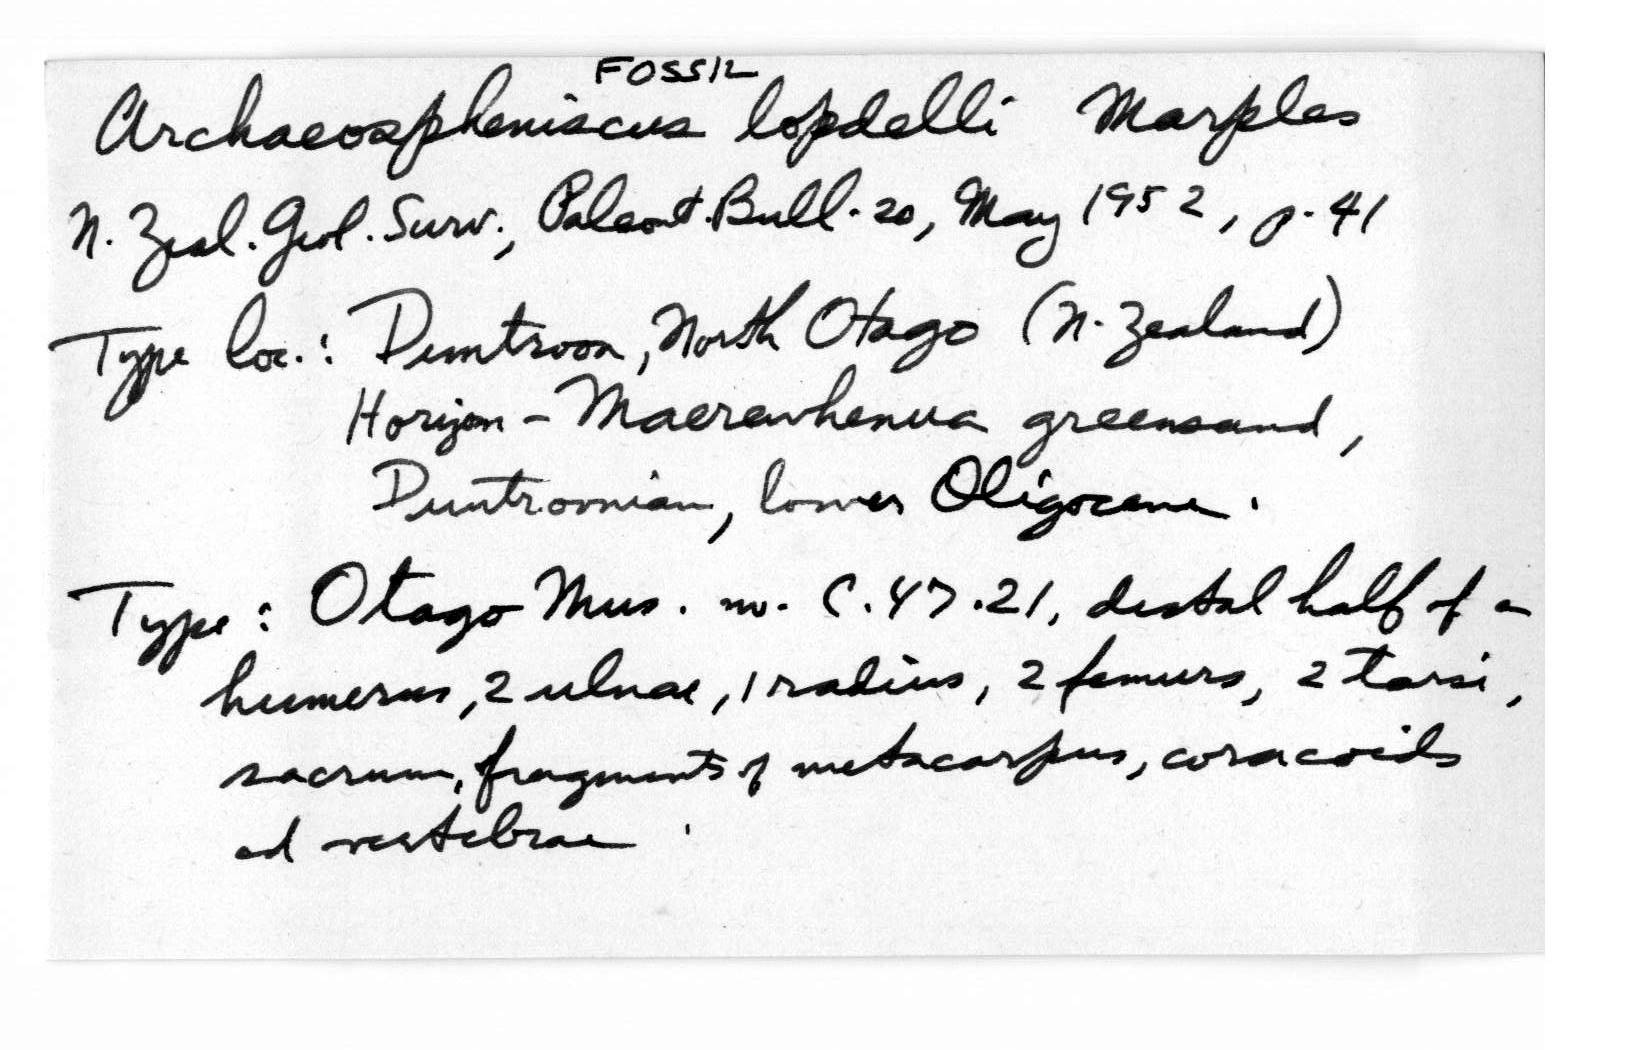 FOSSIL
Archaeospheniscus lopdelli Marples
N. Zeal. Geol. Surv., Paleont. Bull. 20, May 1952, p. 41
Type loc.: Duntroon, North Otago (N. Zealand)
Horizon - Maerewhenua greensand,
Duntroonian, lower Oligocene.
Type: Otago Mus. no. C.47.21, distal half of a
humerus, 2 ulnae, 1 radius, 2 femurs, 2 tarsi,
sacrum, fragments of metacarpus, coracoids
ad vertebrae.